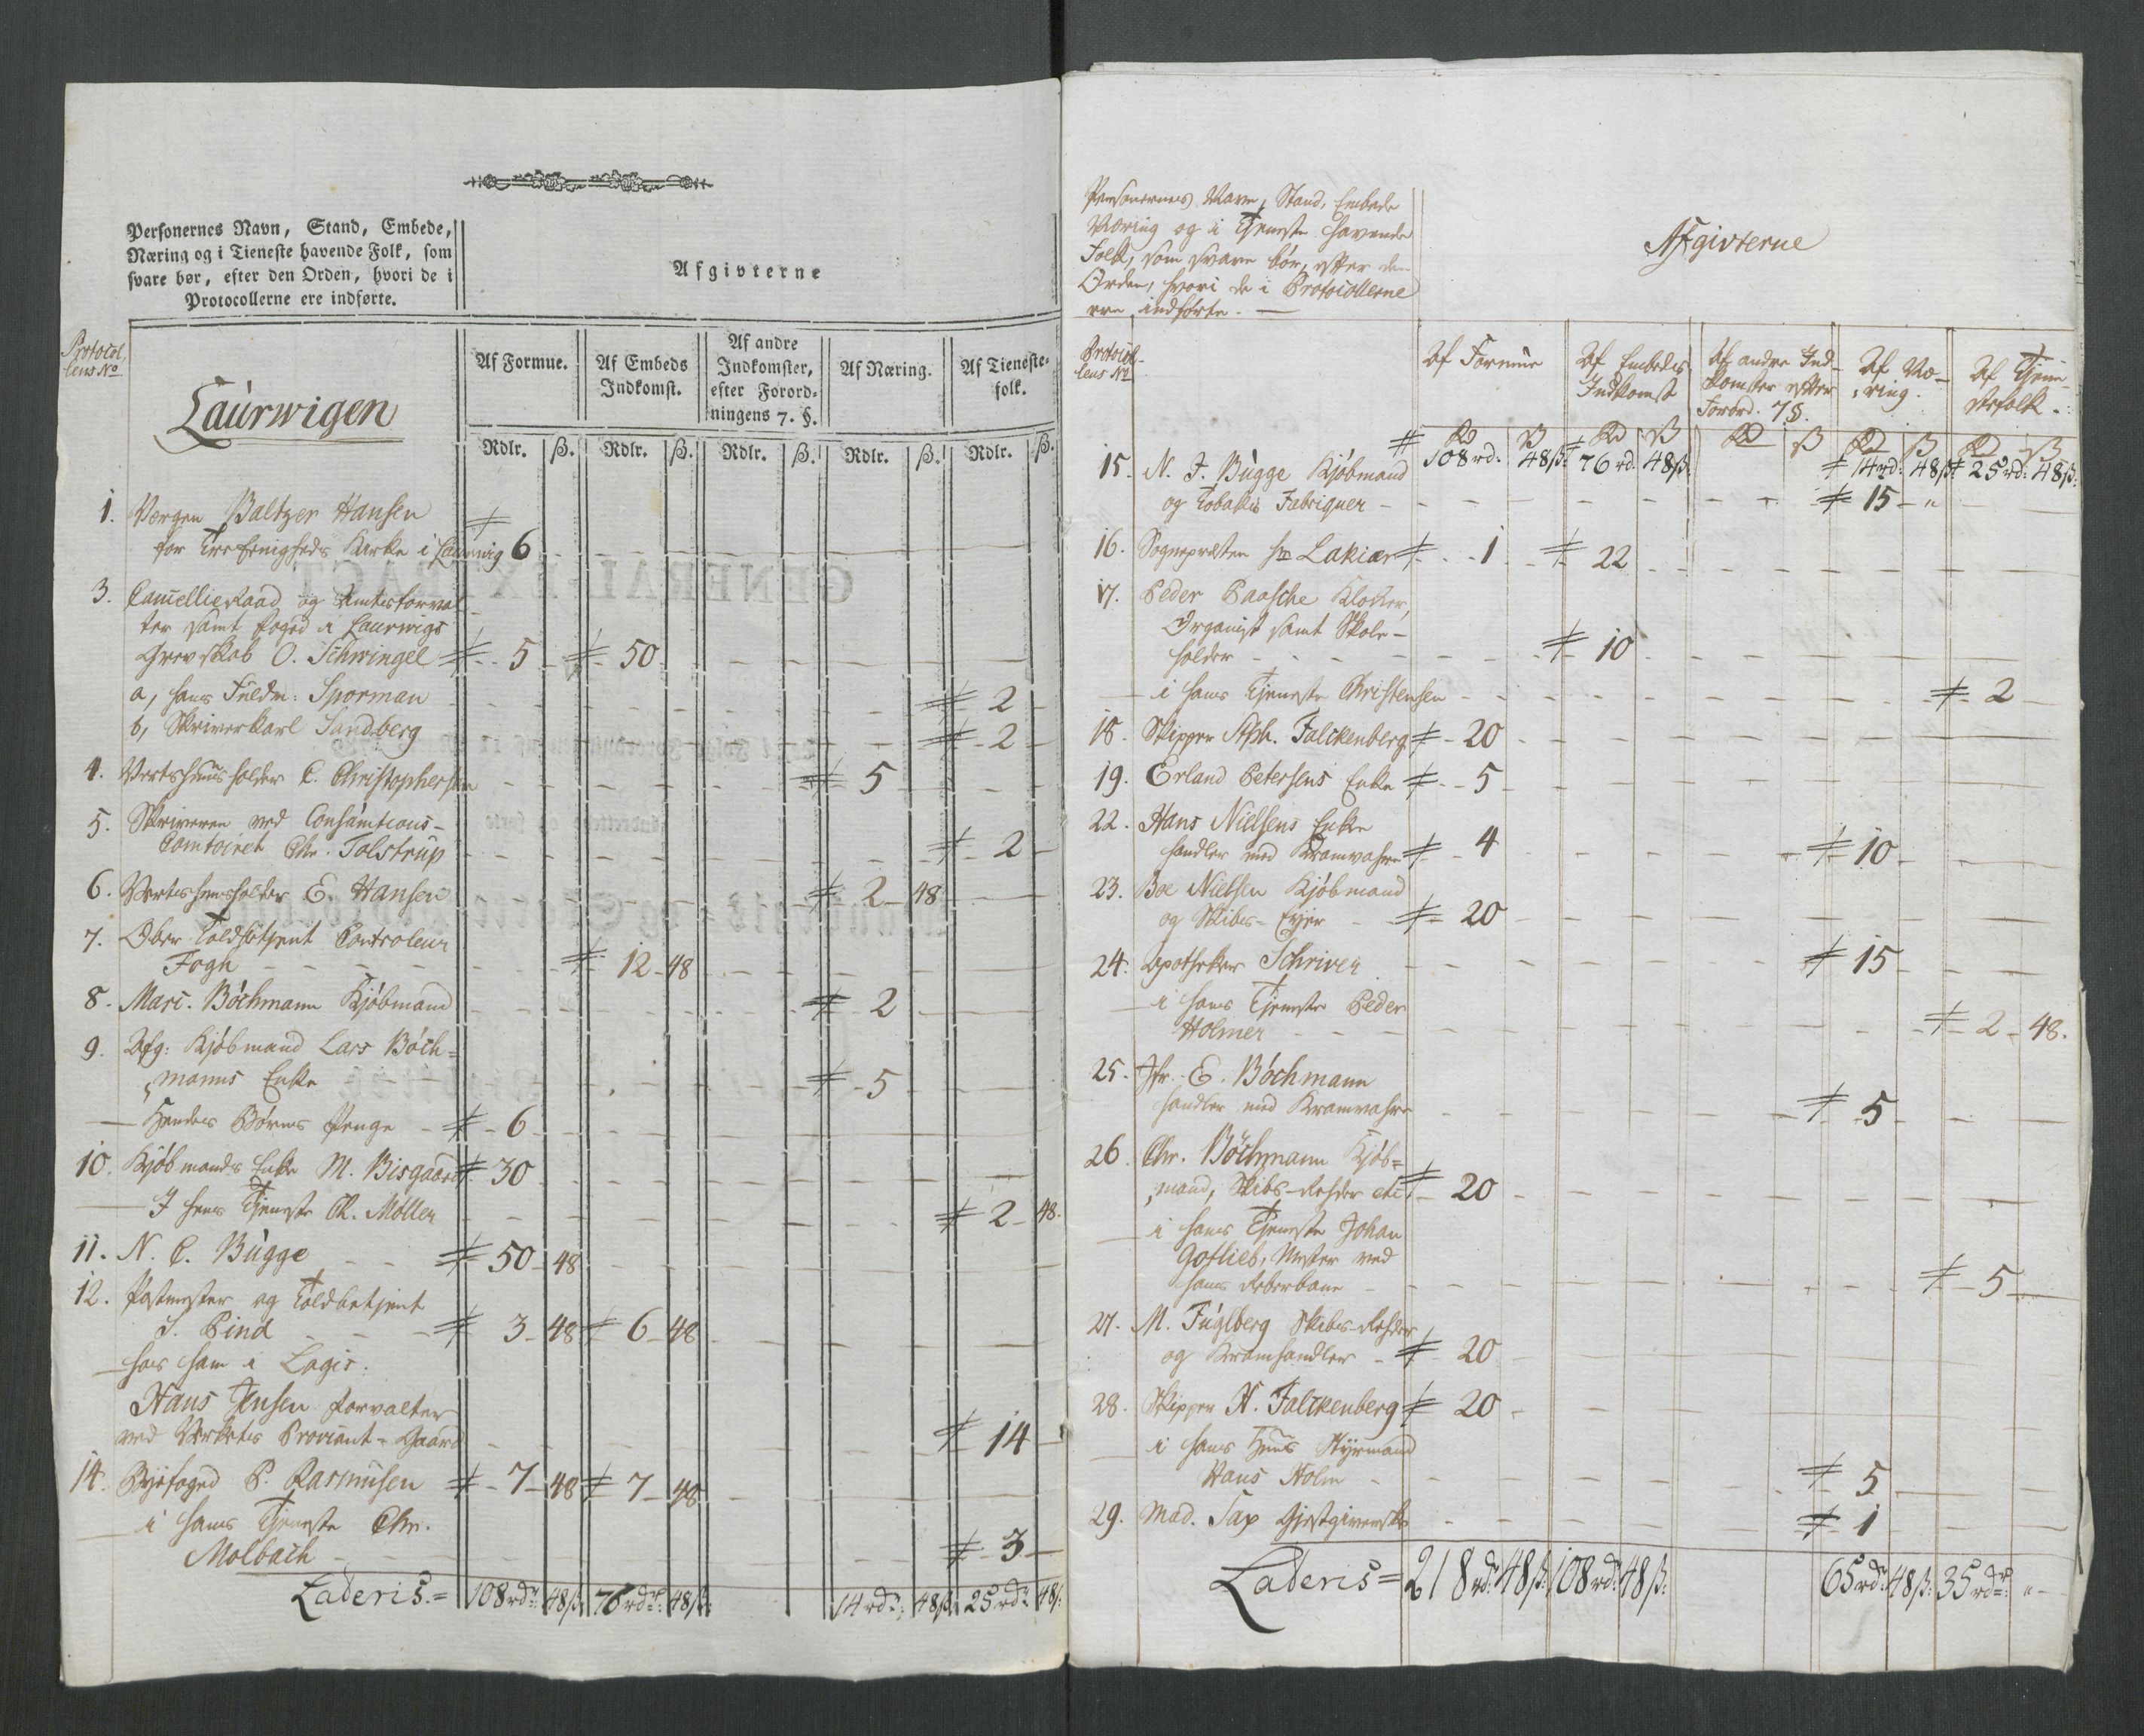 Personernes Navn, Stand, Embede,
Næring og i Tieneste havende Folk, som
svare bør, efter den Orden, hvori de i
Protocollerne ere indførte.
Afgivterne
Protocol,
lens No
Laurwigen
Af Formue.
Af Embeds
Indkomst.
Af andre
Indkomster,
efter Forord-
ningens 7. §.
Af Næring.
Af Tieneste-
folk.
Rdlr. ß. Rdlr. ß. Rdlr. ß. Rdlr. ß. Rdlr. ß.
1. Vergen Baltzer Hansen
for Treeenigheds Kirke i Laurwig 6
3. Cancellieraad og Amtsforval
ter samt foged i Laurwigs
Grevskab O. Schwingel 5 50
a, hans Fuldm: Sporman 2
b, Skriverkarl Sandberg 2
4. Vertshuusholder C. Christophersen 5
5. Skriveren ved Consumtions-
Comtoiret Chr. Tolstrup 2
6. Vertshuusholder E. Hansen 2 48
7. Ober Toldbetjent Controleur
Fogh 12 48
8. Marc. Böchmann Kjöbmand 2
9. Afg: Kjöbmand Lars Böch=
manns Enke 5
Hendes Börns Penge 6
10. Kjöbmands Enke M. Bisgaard 30
I hens Tjeneste Ch. Møller 2 48.
11. N. C. Bugge 50 48
12. Postmester og Toldbetjent
S. Pind 3 48 6 48
hos ham i Logis:
Hans Jensen forvalter
ved Verkets Proviant-Gaard 14
14. Byefoged P. Rasmusen 7 48 7 48
i hans Tjeneste Chr.
Molbach 3
Lateris = 108 rdr 48 ß: 76 rdr: 48 ß: 14 rdr: 48 ß: 25 rdr 48 ß:
Personernes Navn, Stand, Embede
Næring og i Tjeneste havende
Folk, som svare bör, efter den
Orden, hvori de i Protocollerne
ere indförte.
Afgivterne
Protocol-
lens No
Af Formue
Af Embeds
Indkomst
Af andre Ind-
komster efter
Forord. 7 §.
Af Næ-
ring.
Af Tjene-
stefolk.
Rd ß Rd ß Rd ß Rd ß Rd ß
108 rd: 48 ß: 76 rd: 48 ß: 14 rd: 48 ß: 25 rd: 48 ß:
15. N. J. Bugge Kjöbmand
og Tobaks Fabriquer 15 "
16. Sognepræsten Hr Lakier 1 22
17. Peder Paasche Klokker,
Organist samt Skole-
holder 10
i hans Tjeneste Christensen 2
18. Skipper Steph. Falckenberg 20
19. Erland Petersens Enke 5
22. Hans Nielsens Enke
handler med Kramvahre 4 10
23. Boe Nielsen Kjöbmand
og Skibs-Eyer 20
24. Apotheker Schriver 15
i hans Tjeneste Peder
Holmer 2 48.
25. Jfr. E. Böchmann
handler med Kramvahre 5
26. Chr. Böchmann Kjöb=
mand, Skibs-Reder etc. 20
i hans Tjeneste Johan
Gotlieb, Mester ved
hans Reberbane 5
27. M. Fuglberg Skibs-Reder
og Kramhandler 20
28. Skipper N. Falckenberg 20
i hans Huus Styrmand
Hans Holm 5
29. Mad. Sax Gjestgiverske 1
Lateris = 218 rdr 48 ß: 108 rdr 48 ß: 65 rdr: 48 ß: 35 rdr: "